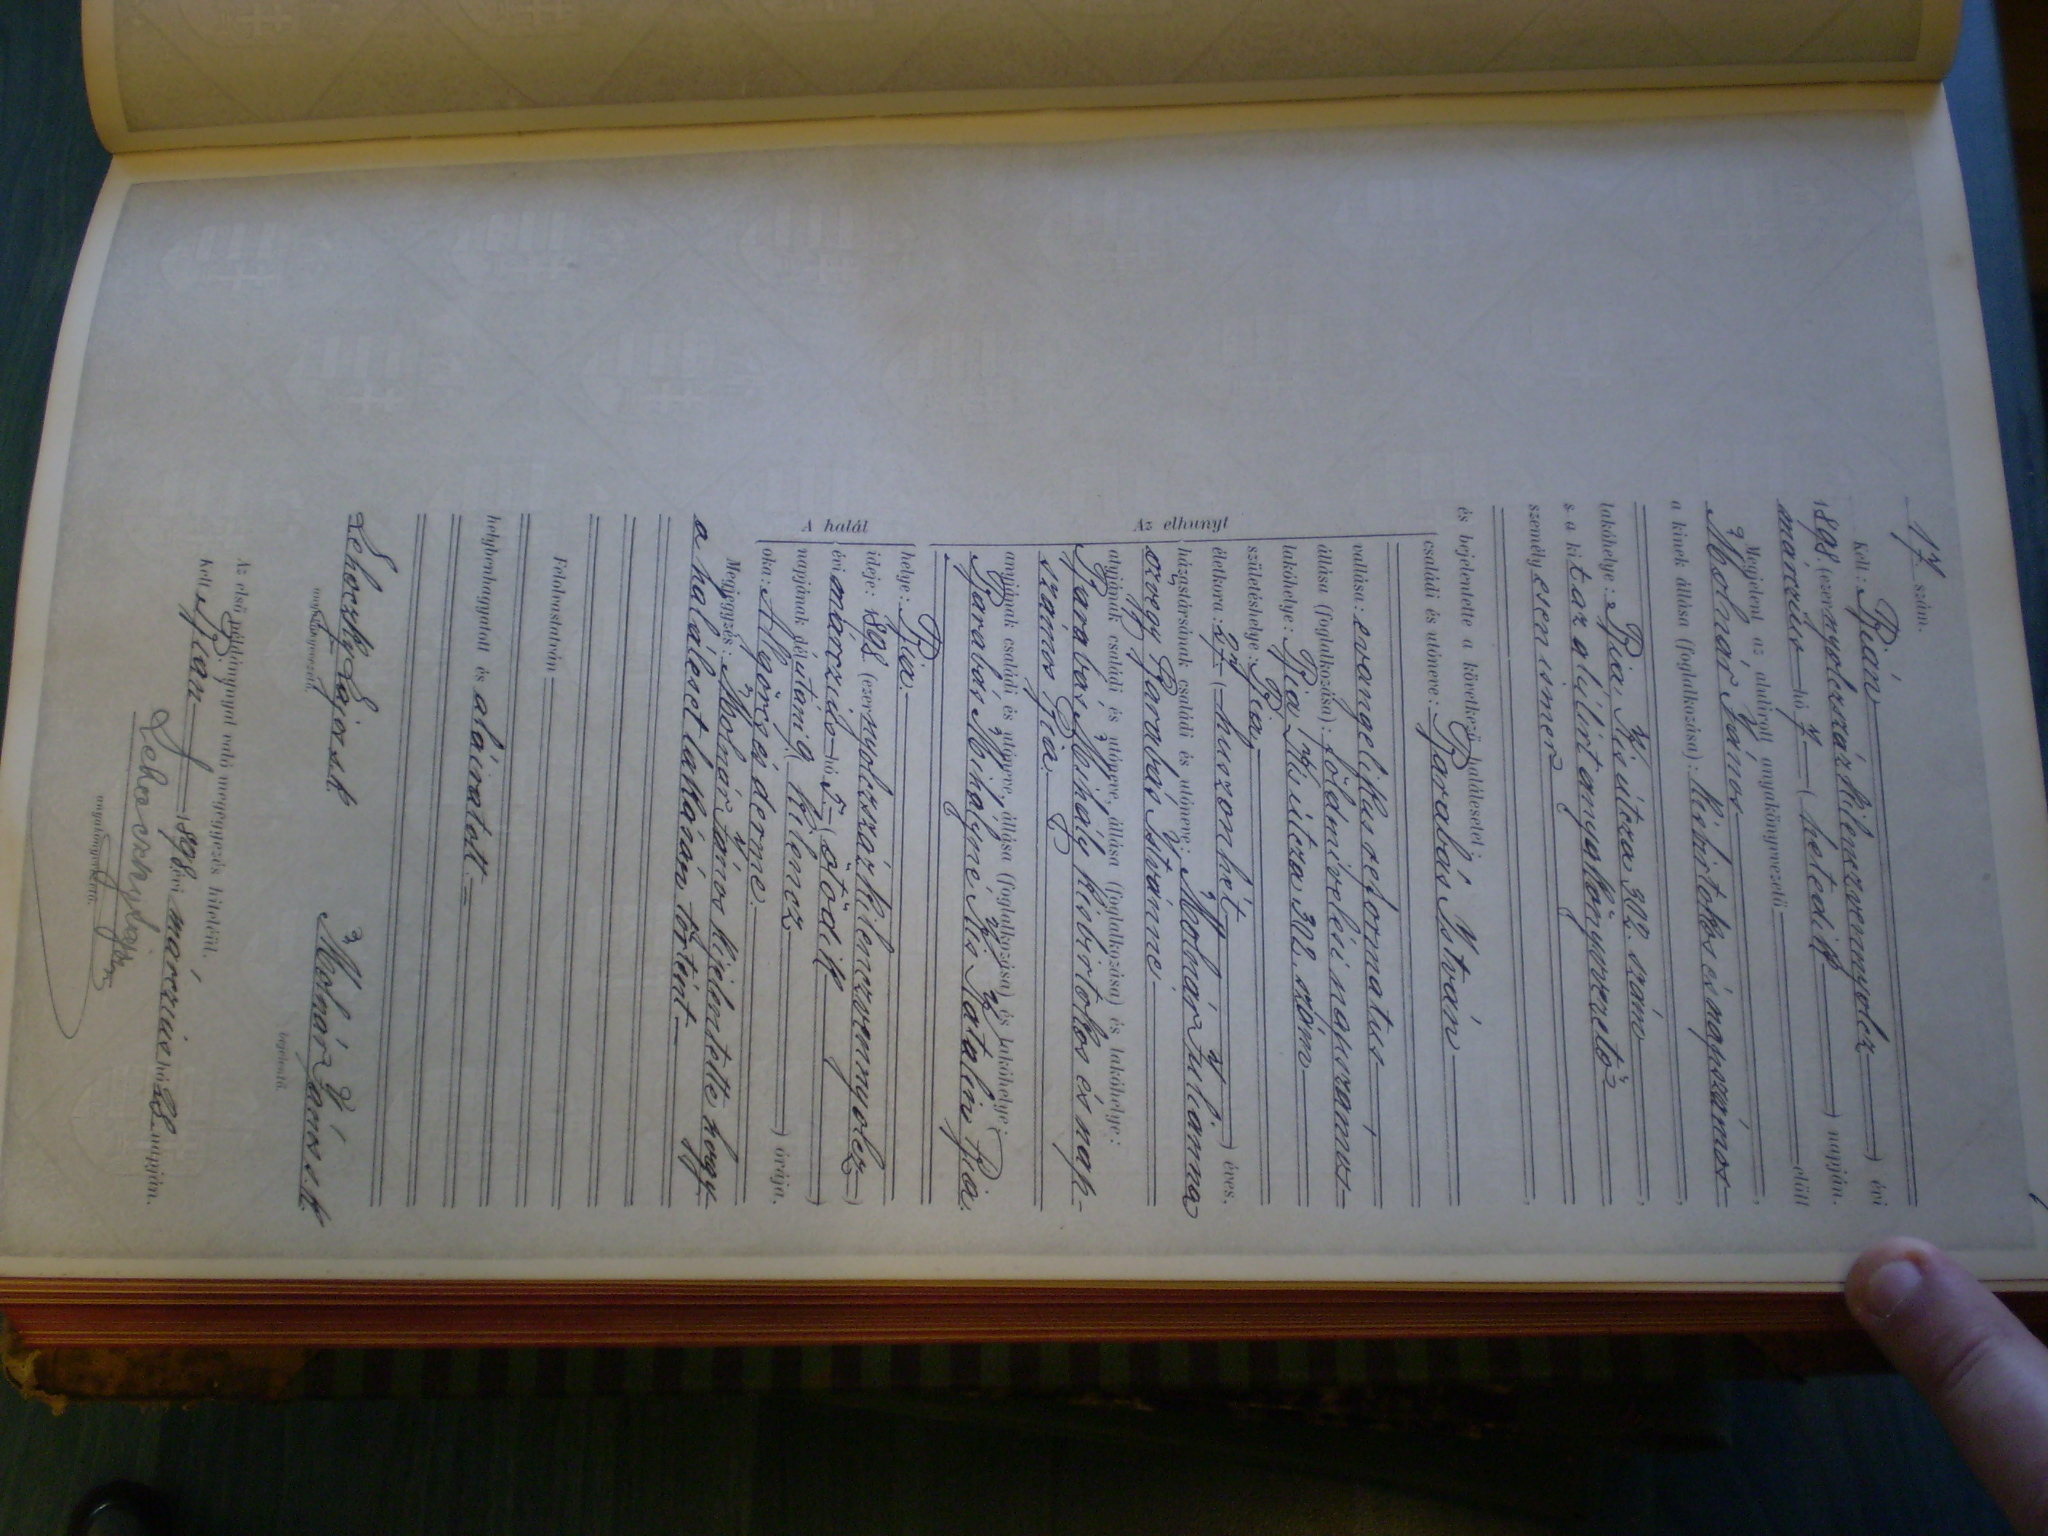 17 szám.
Kelt: Bián
1898 (ezernyolczszázkilenczvennyolcz) évi
márczius hó 7 (hetedik) napján.
Megjelent az alulirott anyakönyvvezető előtt
Molnár János,
a kinek állása (foglalkozása): kisbirtokos és napszámos,
lakóhelye: Bia Kis utcza 302. szám,
s a kit az alúlirt anyakönyvvezető
személyesen ismer,
és bejelentette a következő halálesetet:
Az elhunyt
családi és utóneve: Barabás István
vallása: evangelikus reformatus,
állása (foglalkozása): földmívelési napszámos
lakóhelye: Bia Kis utcza 302. szám
születéshelye: Bia,
életkora: 27 (huszonhét) éves,
házastársának családi és utóneve: Molnár Julianna
özvegy Barabás Istvánné
atyjának családi és utóneve, állása (foglalkozása) és lakóhelye:
Barabás Mihály kisbirtokos és nap-
számos Bia
anyjának családi és utóneve, állása (foglalkozása) és lakóhelye:
Barabás Mihályné Kis Katalin Bia.
A halál
helye: Bia.
ideje: 1898 (ezernyolczszázkilenczvennyolcz)
évi márczius hó 5 (ötödik)
napjának délutáni 9 (kilencz) órája,
oka: Allgörcs és derme.
Megjegyzés: Molnár János kijelentette hogy
a haláleset lakásán történt.
Felolvastatván
helybenhagyatott és aláiratott.
Lehoczky Lajos sk
anyakönyvvezető.
Molnár János s.k.
bejelentő.
Az első példánynyal való megegyezés hiteléül.
Kelt Bián 1898 évi márczius hó 28 napján.
Lehoczky Lajos
anyakönyvvezető.